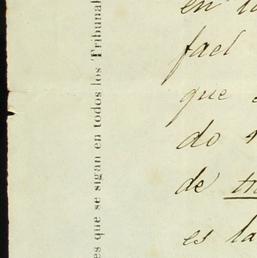 es que se sigan en todos los Tribunal
en l
fael
que
do
de tra
es la